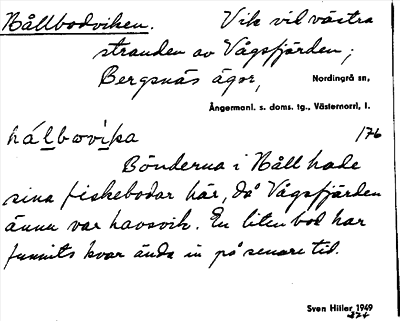 Hållbodviken. Vik vid västra
stranden av Vågsfjärden;
Bergsnäs ägor, Nordingrå sn,
Ångermanl. s. doms. tg., Västernorrl. l.
hålbωvika 176
Bönderna i Håll hade
sina fiskebodar här, då Vågsfjärden
ännu var havsvik. En liten bod har
funnits kvar ända in på senare tid.
Sven Hiller 1949